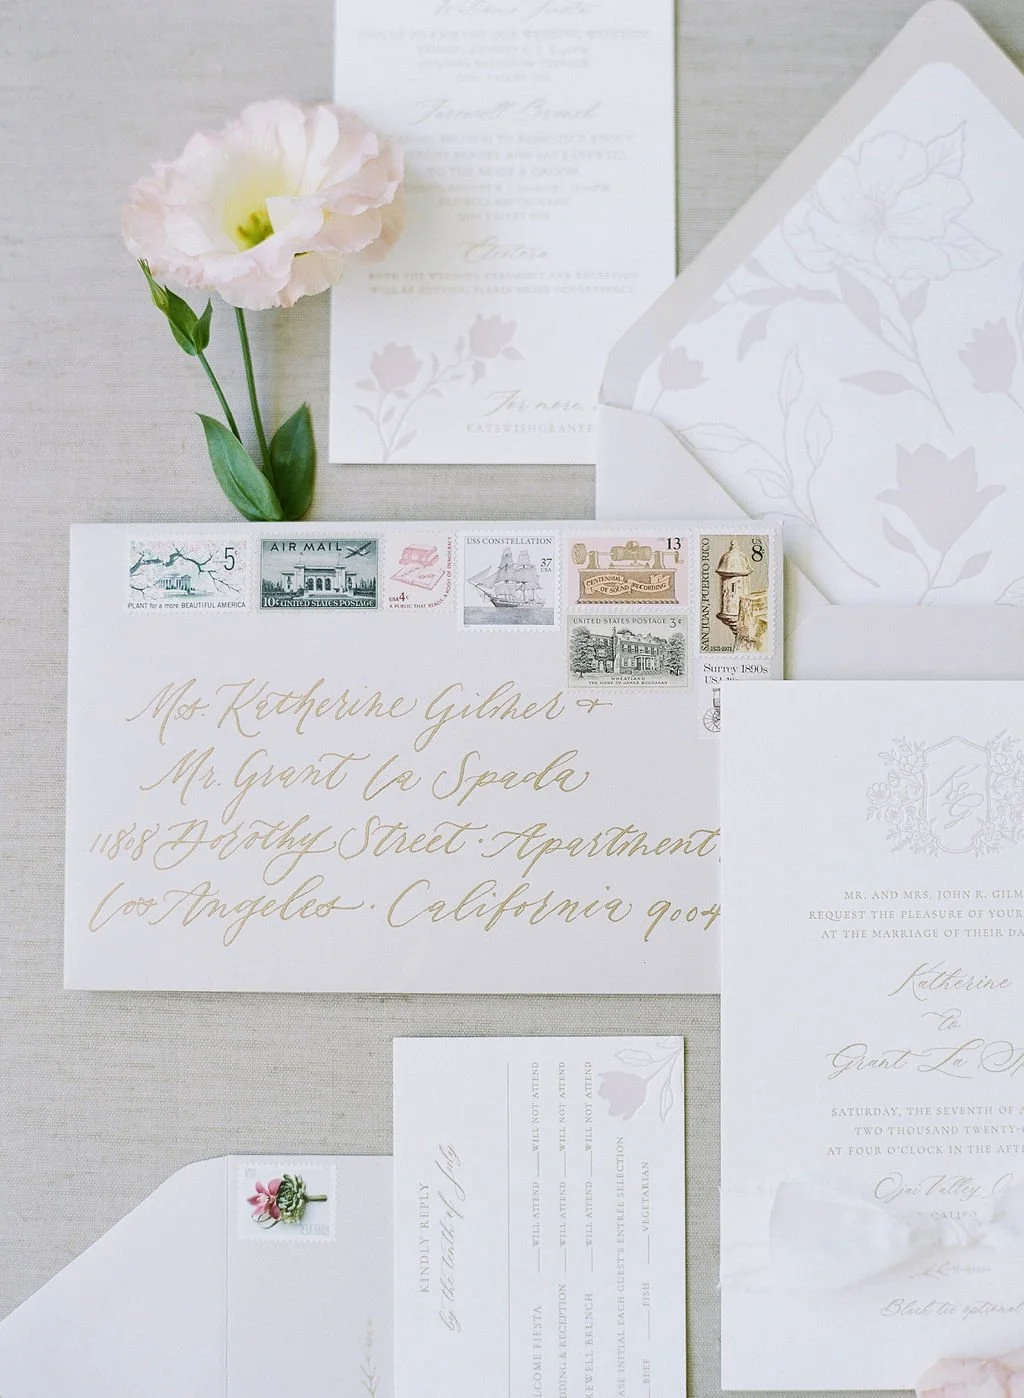 Farewell Brunch
TO THE BRIDE & GROOM
Attire
BOTH THE WEDDING CEREMONY AND RECEPTION
For more
KATEWISHGRANTE
PLANT for a more BEAUTIFUL AMERICA
5
AIR MAIL
10¢ UNITED STATES POSTAGE
USA 4c
A PUBLIC THAT READS A ROOT OF DEMOCRACY
USS CONSTELLATION
37
USA
13
CENTENNIAL OF SOUND RECORDING
UNITED STATES POSTAGE 3¢
WHEATLAND
THE HOME OF JAMES BUCHANAN
US
8¢
SAN JUAN, PUERTO RICO
1521-1971
Surrey 1890s
USA
Ms. Katherine Gilmer &
Mr. Grant La Spada
11808 Dorothy Street · Apartment
Los Angeles · California 9004
K&G
MR. AND MRS. JOHN R. GILM
REQUEST THE PLEASURE OF YOUR
AT THE MARRIAGE OF THEIR DA
Katherine
to
Grant La Sp
SATURDAY, THE SEVENTH OF A
TWO THOUSAND TWENTY-
AT FOUR O'CLOCK IN THE AFTE
Ojai Valley
Black tie optional
KINDLY REPLY
by the tenth of July
LCOME FIESTA ___WILL ATTEND ___WILL NOT ATTEND
DDING & RECEPTION ___WILL ATTEND ___WILL NOT ATTEND
REWELL BRUNCH ___WILL ATTEND ___WILL NOT ATTEND
ASE INITIAL EACH GUEST'S ENTRÉE SELECTION
___BEEF ___FISH ___VEGETARIAN